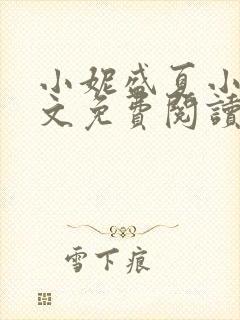 小妮盛夏小
文免費閱讀
雪下痕